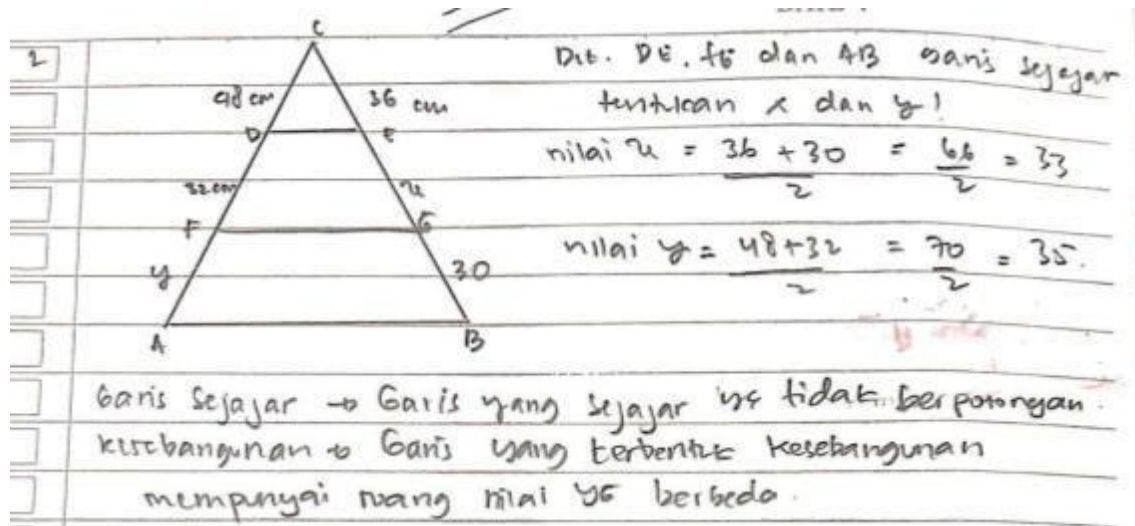 2
C
48 cm
36 cm
D
E
32 cm
x
F
G
y
30
A
B
Dit. DE, FG dan AB garis sejajar
tentukan x dan y!
nilai x = 36 + 30 / 2 = 66 / 2 = 33
nilai y = 48+32 / 2 = 70 / 2 = 35.
Garis Sejajar → Garis yang sejajar yg tidak berpotongan.
kesebangunan → Garis yang terbentuk kesebangunan
mempunyai ruang nilai yg berbeda.